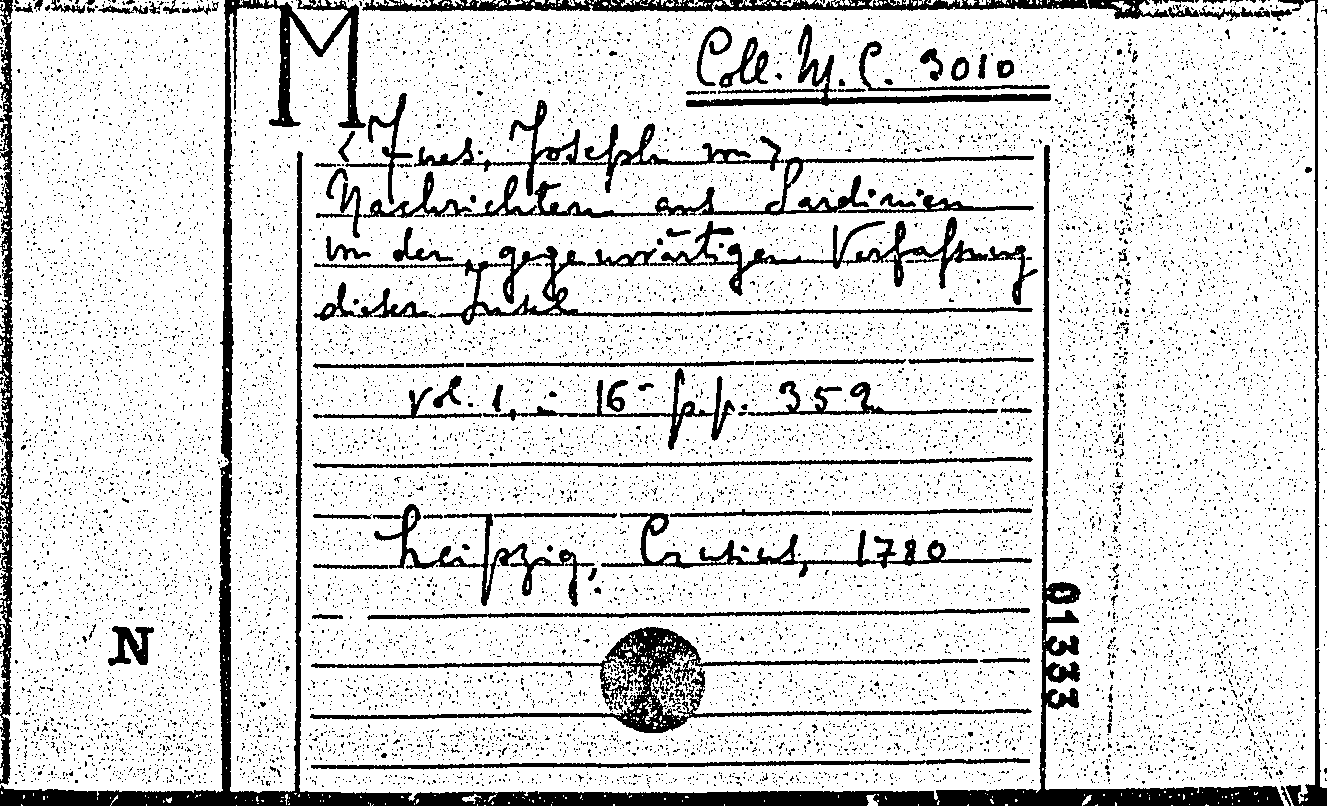 M
Coll. M. C. 3010
<Fues, Joseph von>
Nachrichten aus Sardinien
von der gegenwärtigen Verfassung
dieser Insel
vol. 1, in 16° p.p. 352
Leipzig, Crusius, 1780
01333
N